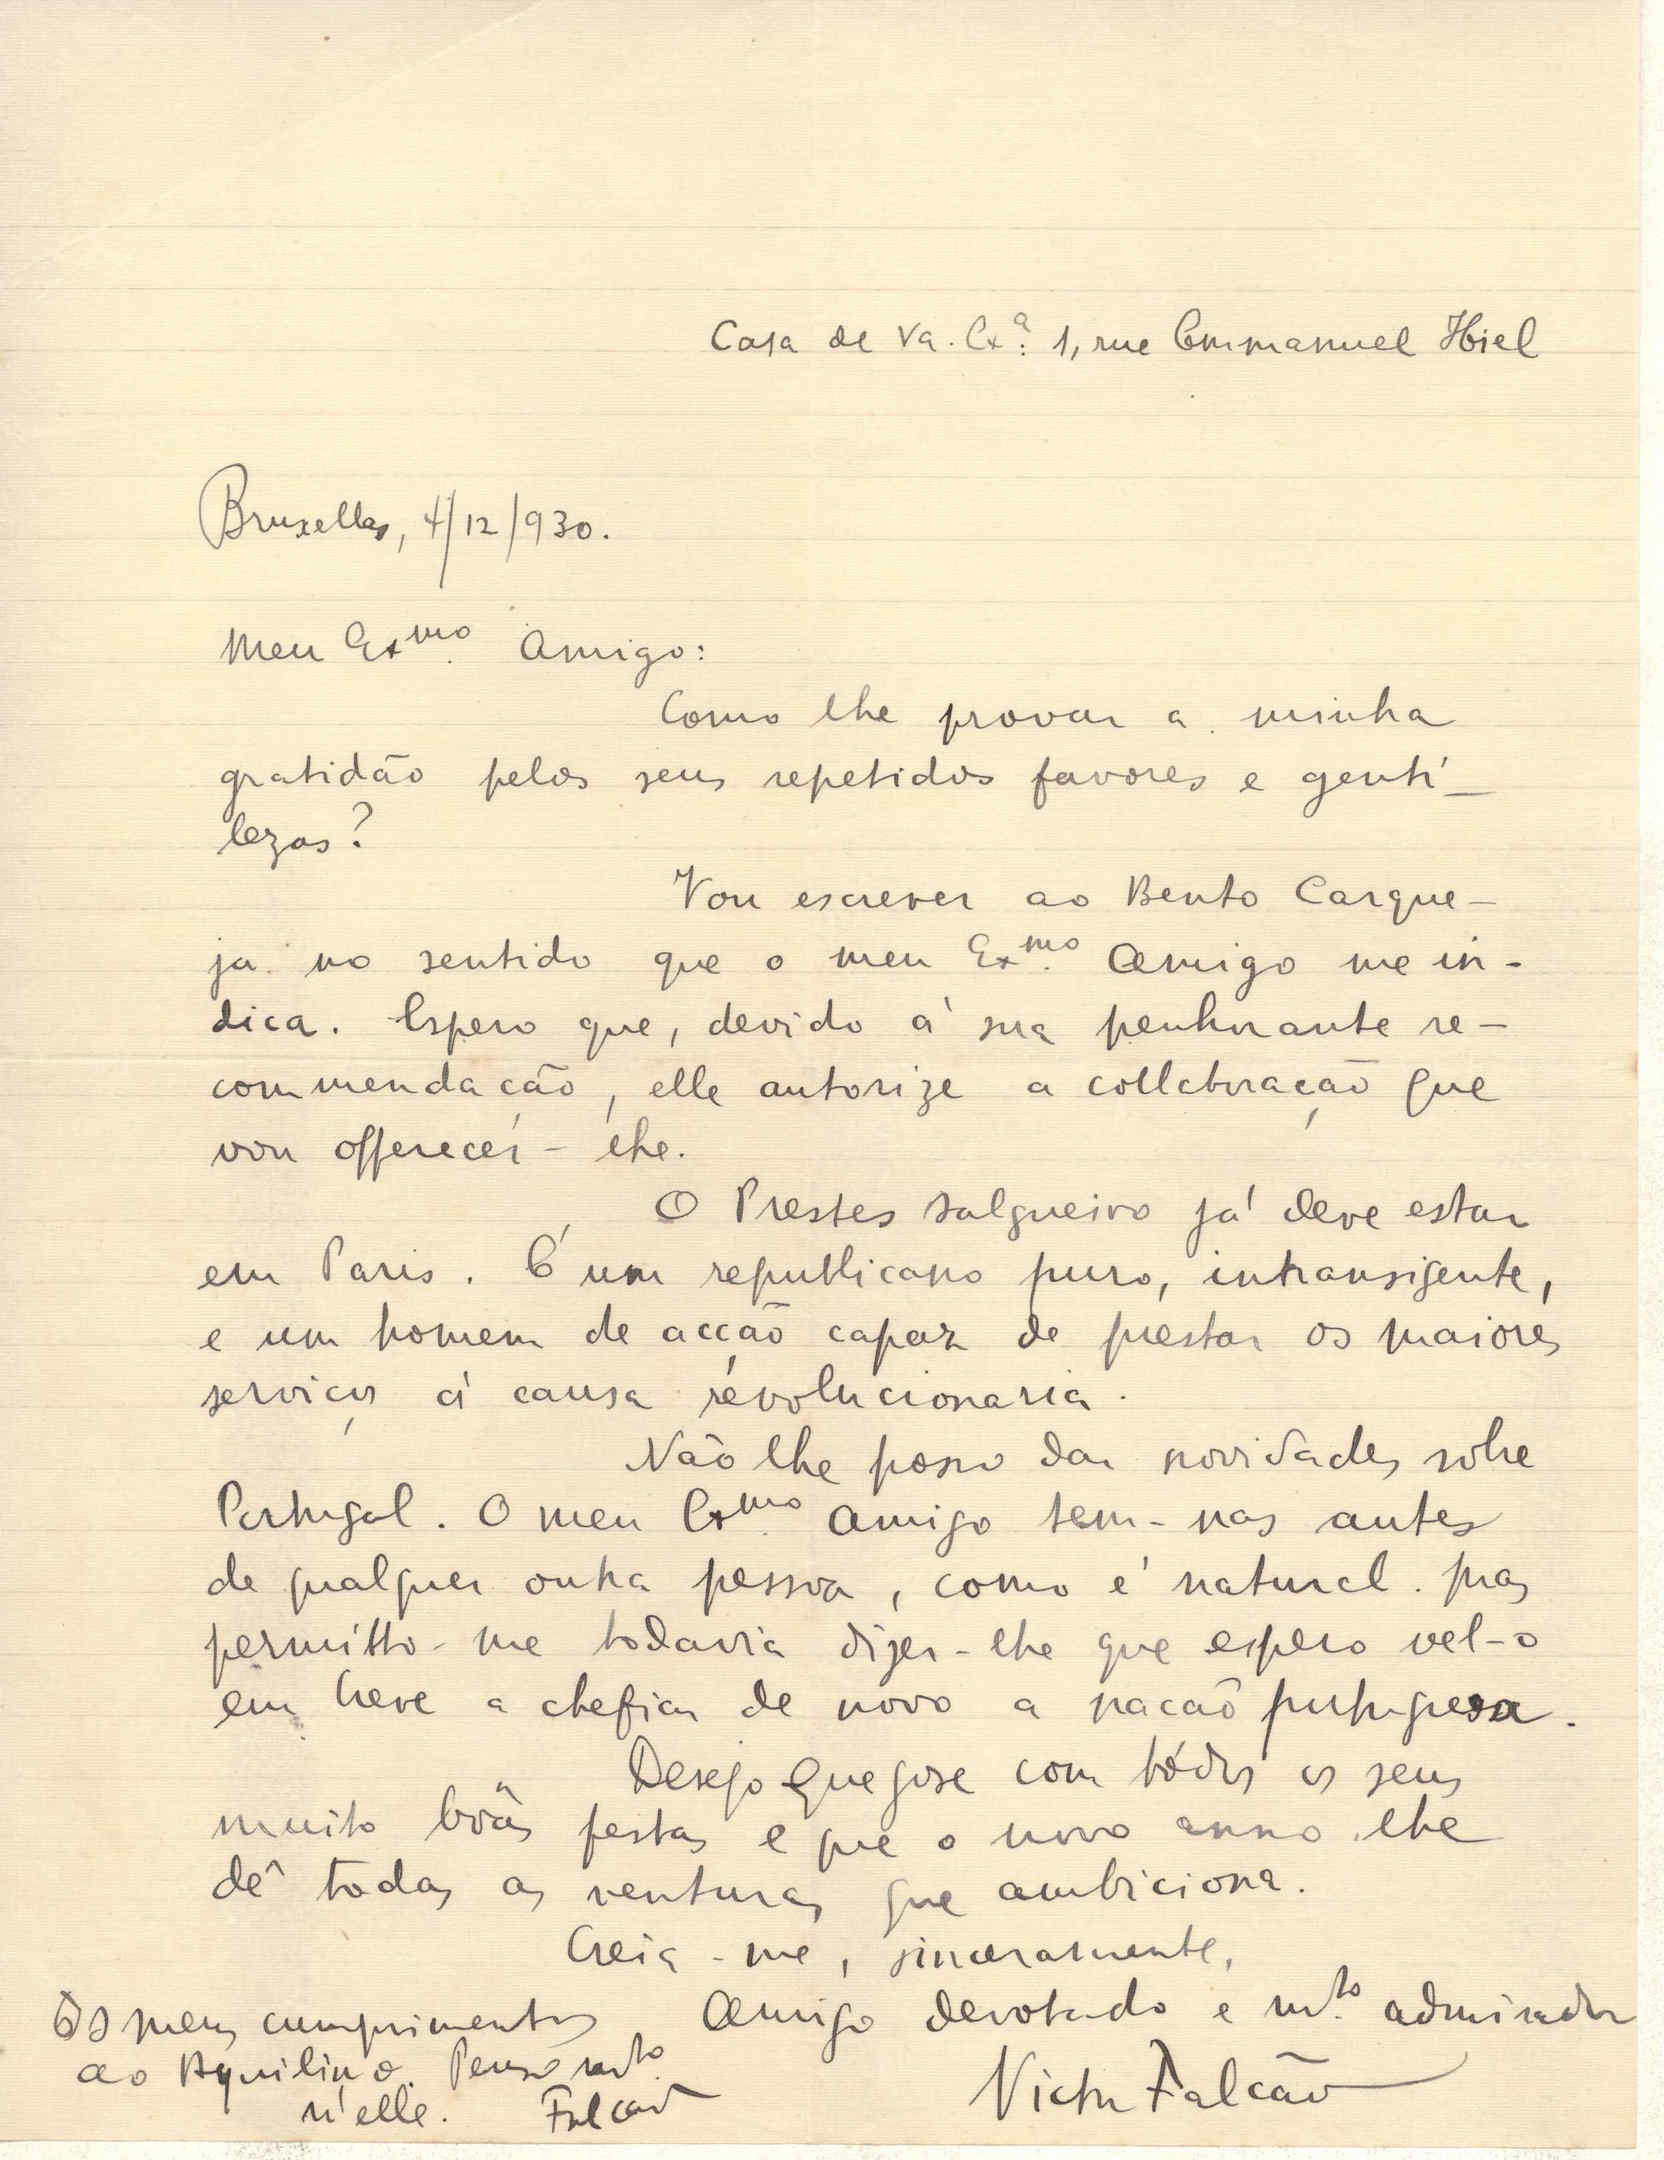 Casa de Va. Exª: 1, rue Emmanuel Hiel
Bruxellas, 4/12/930.
Meu Exmo. Amigo:
Como lhe provar a minha
gratidão pelos seus repetidos favores e genti-
lezas?
Vou escrever ao Bento Carque-
ja no sentido que o meu Exmo. Amigo me in-
dica. Espero que, devido á sua penhorante re-
commendação, elle autorize a collaboração que
vou offerecer-lhe.
O Prestes Salgueiro já deve estar
em Paris. É um republicano puro, intransigente,
e um homem de acção capaz de prestar os maiores
serviços á causa revolucionaria.
Não lhe posso dar novidades sobre
Portugal. O meu Exmo. Amigo tem-nas antes
de qualquer outra pessoa, como é natural. Mas
permitto-me todavia dizer-lhe que espero vel-o
em breve a chefiar de novo a nação portugueza.
Desejo que gose com tódos os seus
muito bôas festas e que o novo anno lhe
dê todas as venturas que ambiciona.
Creia-me, sinceramente,
Amigo devotado e mto. admirador
Victor Falcão
Os meus cumprimentos
ao Aquilino. Penso mto.
n'elle. Falcão